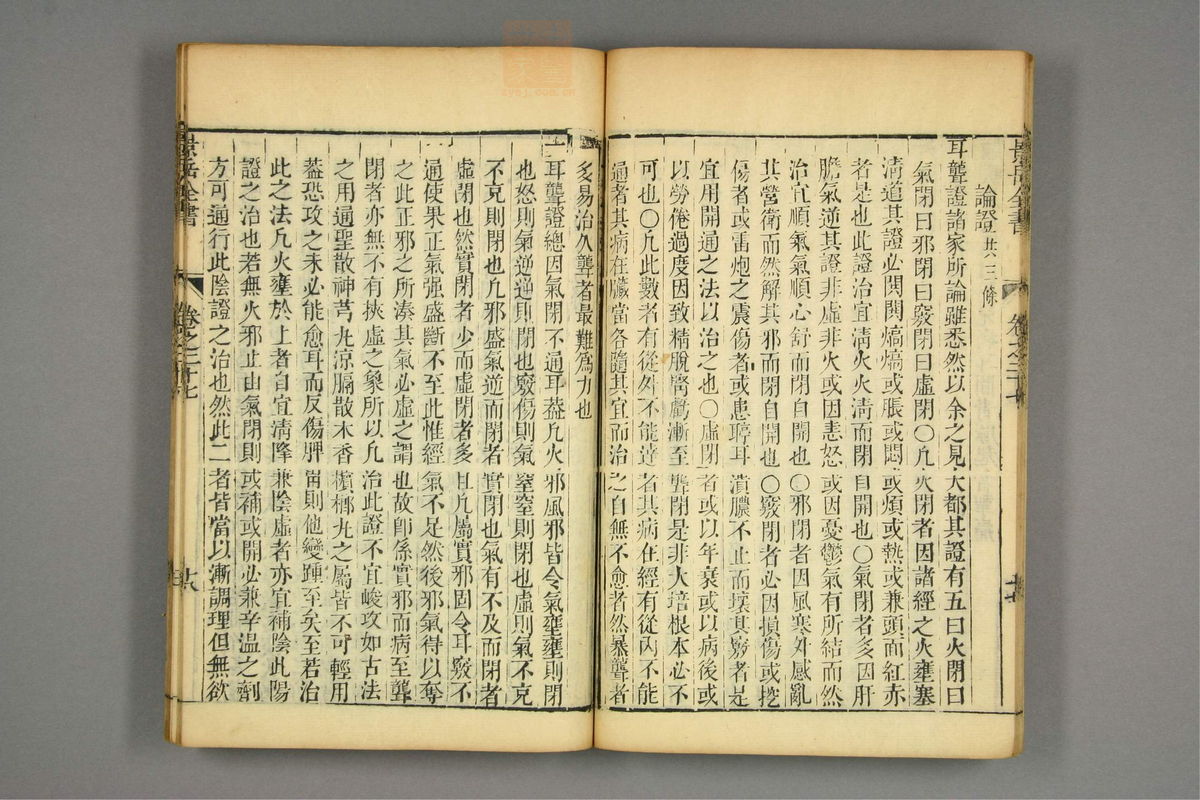 論證 共三條
耳聾證諸家所論雖悉然以余之見大都其證有五曰火閉曰
氣閉曰邪閉曰竅閉曰虛閉○凡火閉者因諸經之火壅塞
清道其證必閧閧熇熇或脹或悶或煩或熱或兼頭面紅赤
者是也此證治宜清火火清而閉自開也○氣閉者多因肝
膽氣逆其證非虛非火或因恚怒或因憂鬱氣有所結而然
治宜順氣氣順心舒而閉自開也○邪閉者因風寒外感亂
其營衛而然解其邪而閉自開也○竅閉者必因損傷或挖
傷者或雷炮之震傷者或患聤耳潰膿不止而壞其竅者是
宜用開通之法以治之也○虛閉者或以年衰或以病後或
以勞倦過度因致精脫腎虧漸至聾閉是非大培根本必不
可也○凡此數者有從外不能達者其病在經有從內不能
通者其病在臟當各隨其宜而治之自無不愈者然暴聾者
多易治久聾者最難爲力也
一耳聾證總因氣閉不通耳葢凡火邪風邪皆令氣壅壅則閉
也怒則氣逆逆則閉也竅傷則氣窒窒則閉也虛則氣不克
不克則閉也凡邪盛氣逆而閉者實閉也氣有不及而閉者
虛閉也然實閉者少而虛閉者多且凡屬實邪固令耳竅不
通使果正氣强盛斷不至此惟經氣不足然後邪氣得以奪
之此正邪之所湊其氣必虛之謂也故卽係實邪而病至聾
閉者亦無不有挾虛之象所以凡治此證不宜峻攻如古法
之用通聖散神芎丸凉膈散木香檳榔丸之屬皆不可輕用
葢恐攻之未必能愈耳而反傷脾胃則他變踵至矣至若治
此之法凡火壅於上者自宜清降兼陰虛者亦宜補陰此陽
證之治也若無火邪止由氣閉則或補或開必兼辛温之劑
方可通行此陰證之治也然此二者皆當以漸調理但無欲
景岳全書
卷之二十七
景岳全書
卷之二十七